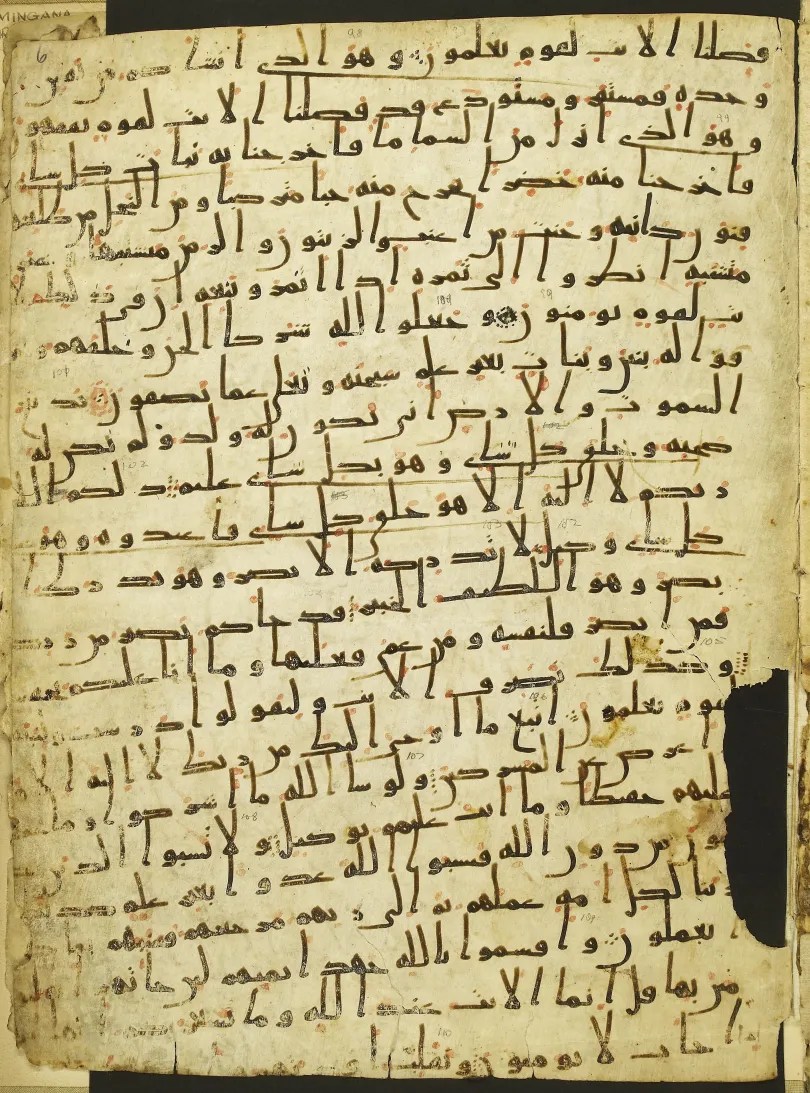 MINGANA
6
فصلنا الايت لقوم يعلمون وهو الذي انشاكم من نفس
وحده فمستقر ومستودع قد فصلنا الايت لقوم يفقهو
وهو الذي انزل من السما ما فاخرجنا به نبات كل شاي
فاخرجنا منه خضرا نخرج منه حبا متركبا ومن النخل من طلعها
قنون دانيه وجنت من اعنب والزيتون والرمن مشتبها وغير
متشبه انظروا الى ثمره اذا اثمر وينعه ان في ذلكم لا
يت لقوم يومنون وجعلوا لله شركا الجن وخلقهم و
خرقوا له بنين وبنات بغير علم سبحنه وتعلى عما يصفون بديع
السموت والارض انى يكون له ولد ولم تكن له
صحبه وخلق كل شاي وهو بكل شاي عليم ذلكم الله
ربكم لا اله الا هو خلق كل شاي فاعبدوه وهو
كل شاي وكيل لا تدركه الابصر وهو يدرك الا
بصر وهو اللطيف الخبير قد جاكم بصير من ربكم
فمن ابصر فلنفسه ومن عمي فعليها وما انا عليكم بحفيظ
وكذلك نصرف الايت وليقولوا درست ولنبينه
لقوم يعلمون اتبع ما اوحي اليك من ربك لا اله الا
اعرض عن المشركين ولو شا الله ما اشركوا وما
عليهم حفيظا وما انت عليهم بوكيل ولا تسبوا الذين
عون من دون الله فيسبوا الله عدوا بغير علم كذلك
ينا لكل امه عملهم ثم الى ربهم مرجعهم فينبيهم
ا يعملون واقسموا بالله جهد ايمنهم لين جاتهم
من بها قل انما الايت عند الله وما يشعركم
ا جات لا يومنون ونقلب